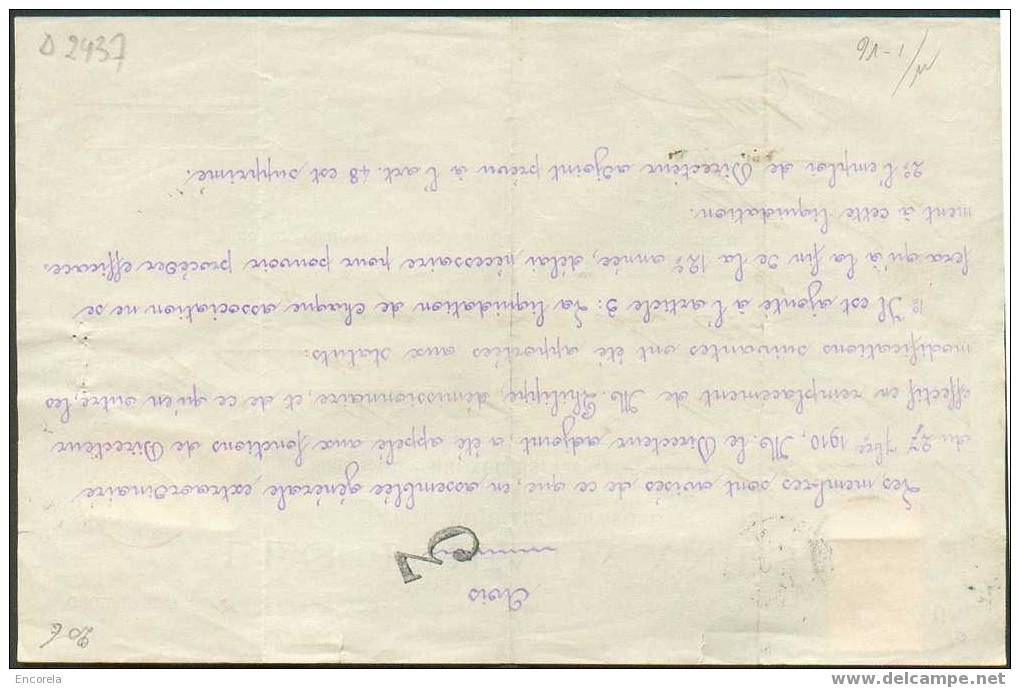 Avis
Les membres sont avisés de ce que, en assemblée générale extraordinaire
du 27 7bre 1910, M. le Directeur adjoint, a été appelé aux fonctions de Directeur
effectif en remplacement de M. Philippe, démissionnaire, et de ce qu'en outre, les
modifications suivantes ont été apportées aux statuts:
1º Il est ajouté à l'article 3: La liquidation de chaque association ne se
fera qu'à la fin de la 12e année, délai nécessaire pour pouvoir procéder efficace-
ment à cette liquidation.
2º l'emploi de Directeur adjoint prévu à l'art. 48 est supprimé.
D 2437
20 €
Encorela
www.delcampe.net